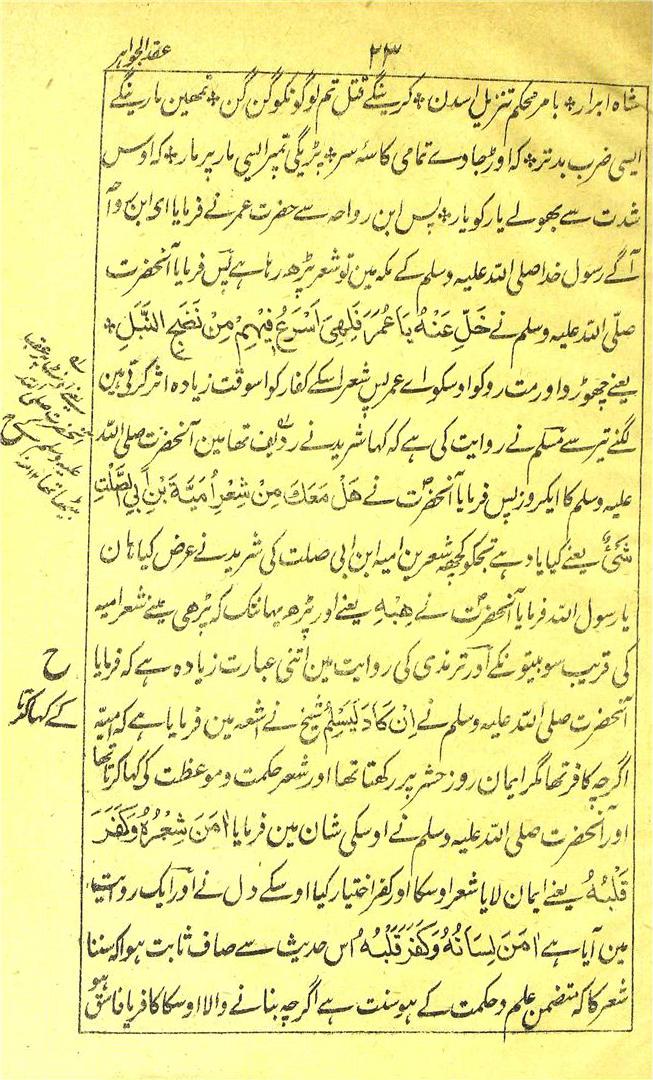 عقد الجواہر
۲۳
شاہ ابرار ٭ بامر محکم تنزیل اسدن ٭ کرینگے قتل تم لوگونکو گن گن ٭ تمھین مارینگے
ایسی ضرب بدتر ٭ کہ اوڑجاوے تمامی کاسۂ سر ٭ پڑیگی تمپر ایسی مار پر مار ٭ کہ اوس
شدت سے بھولے یار کو یار ٭ پس ابن رواحہ سے حضرت عمر نے فرمایا ای ابن رواحہ
آگے رسول خدا صلی اللہ علیہ وسلم کے مکہ مین تو شعر پڑھ رہا ہے پس فرمایا آنحضرت
صلّی اللہ علیہ وسلم نے خَلِّ عَنْهُ يَا عُمَرُ فَلَهِيَ اَسْرَعُ فِيْهِمْ مِنْ نَضْحِ النَّبْلِ ٭
یعنے چھوڑ دو اور مت روکو اوسکو اے عمر پس شعر اسکے کفار کو اسوقت زیادہ اثر کرتی ہین
لگنے تیر سے مسلم نے روایت کی ہے کہ کہا شرید نے ردیف تھا مین آنحضرت صلی اللہ
علیہ وسلم کا ایکروز پس فرمایا آنحضرتؐ نے هَلْ مَعَكَ مِنْ شِعْرِ اُمَيَّةَ بْنِ اَبِي الصَّلْتِ
شَيْءٌ یعنے کیا یاد ہے تجکو کچھہ شعرین امیہ ابن ابی صلت کی شرید نے عرض کیا ہان
یا رسول اللہ فرمایا آنحضرتؐ نے هِيْهِ یعنے اور پڑھ یہانتک کہ پڑھی مینے شعر امیہ
کی قریب سو بیتونکے اور ترمذی کی روایت مین اتنی عبارت زیادہ ہے کہ فرمایا
آنحضرت صلی اللہ علیہ وسلم نے اِنْ كَادَ لَيُسْلِمُ شیخ نے اشعہ مین فرمایا ہے کہ امیّہ
اگرچہ کافر تھا مگر ایمان روز حشر پر رکھتا تھا اور شعر حکمت وموعظت کی کہا کرتا تھا
اور آنحضرت صلی اللہ علیہ وسلم نے اوسکی شان مین فرمایا اٰمَنَ شِعْرُهٗ وَكَفَرَ
قَلْبُهٗ یعنے ایمان لایا شعر اوسکا اور کفر اختیار کیا اوسکے دل نے اور ایک روایت
مین آیا ہے اٰمَنَ لِسَانُهٗ وَكَفَرَ قَلْبُهٗ اس حدیث سے صاف ثابت ہوا کہ سننا
شعر کا کہ متضمن علم وحکمت کے ہو سنت ہے اگرچہ بنانے والا اوسکا کافر یا فاسق ہو
آنحضرت صلی اللہ
علیہ وسلم کے
بیٹھا تھا ۱۲
ح
کے کہا کرتا